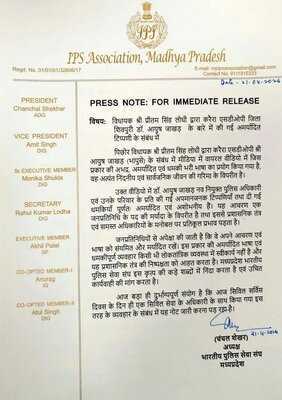 IPS Association, Madhya Pradesh
Email:
Contact No.
PRESS NOTE: FOR IMMEDIATE RELEASE
PRESIDENT
Chanchal Shekhar
ADG
VICE PRESIDENT
Amit Singh
DIG
Sr. EXECUTIVE MEMBER
Monika Shukla
DIG
SECRETARY
Rahul Kumar Lodha
DIG
EXECUTIVE MEMBER
Akhil Patel
SP
CO-OPTED MEMBER-I
Anurag
IG
CO-OPTED MEMBER-II
Atul Singh
DIG
विषय: विधायक श्री प्रीतम सिंह लोधी द्वारा करैरा एसडीओपी जिला
शिवपुरी डॉ. आयुष जाखड़ के बारे में की गई अमर्यादित
टिप्पणी के संबंध में।
पिछोर विधायक श्री प्रीतम सिंह लोधी द्वारा करैरा एसडीओपी श्री
आयुष जाखड़ (भापुसे) के संबंध में मीडिया में वायरल वीडियो में जिस
प्रकार की अभद्र, अमर्यादित एवं धमकी भरी भाषा का प्रयोग किया गया है,
वह अत्यंत निंदनीय एवं सार्वजनिक जीवन की गरिमा के विपरीत है।
उक्त वीडियो में डॉ. आयुष जाखड़ नव नियुक्त पुलिस अधिकारी
एवं उनके परिवार के प्रति की गई अपमानजनक टिप्पणियां तथा दी गई
धमकियां पूर्णतः अमर्यादित एवं अशोभनीय हैं। यह आचरण एक
जनप्रतिनिधि के पद की मर्यादा के विपरीत है तथा इससे प्रशासनिक तंत्र
एवं समस्त अधिकारियों के मनोबल पर प्रतिकूल प्रभाव पड़ता है।
जनप्रतिनिधियों से अपेक्षा की जाती है कि वे अपने आचरण एवं
भाषा को संयमित और मर्यादित रखें। इस प्रकार की अमर्यादित भाषा एवं
धमकीपूर्ण व्यवहार किसी भी लोकतांत्रिक व्यवस्था में स्वीकार्य नहीं है और
यह प्रशासनिक तंत्र की निष्पक्षता को आहत करता है। मध्यप्रदेश भारतीय
पुलिस सेवा संघ इस कृत्य की कड़े शब्दों में निंदा करता है एवं उचित
कार्यवाही की मांग करता है।
आज बड़ा ही दुर्भाग्यपूर्ण संयोग है कि आज सिविल सर्विस
दिवस के दिन ही एक सिविल सेवा के अधिकारी के साथ किया गया इस
तरह के व्यवहार के संबंध में यह नोट जारी करना पड़ रहा है।
21-4-2026
(चंचल शेखर)
अध्यक्ष
भारतीय पुलिस सेवा संघ
मध्यप्रदेश